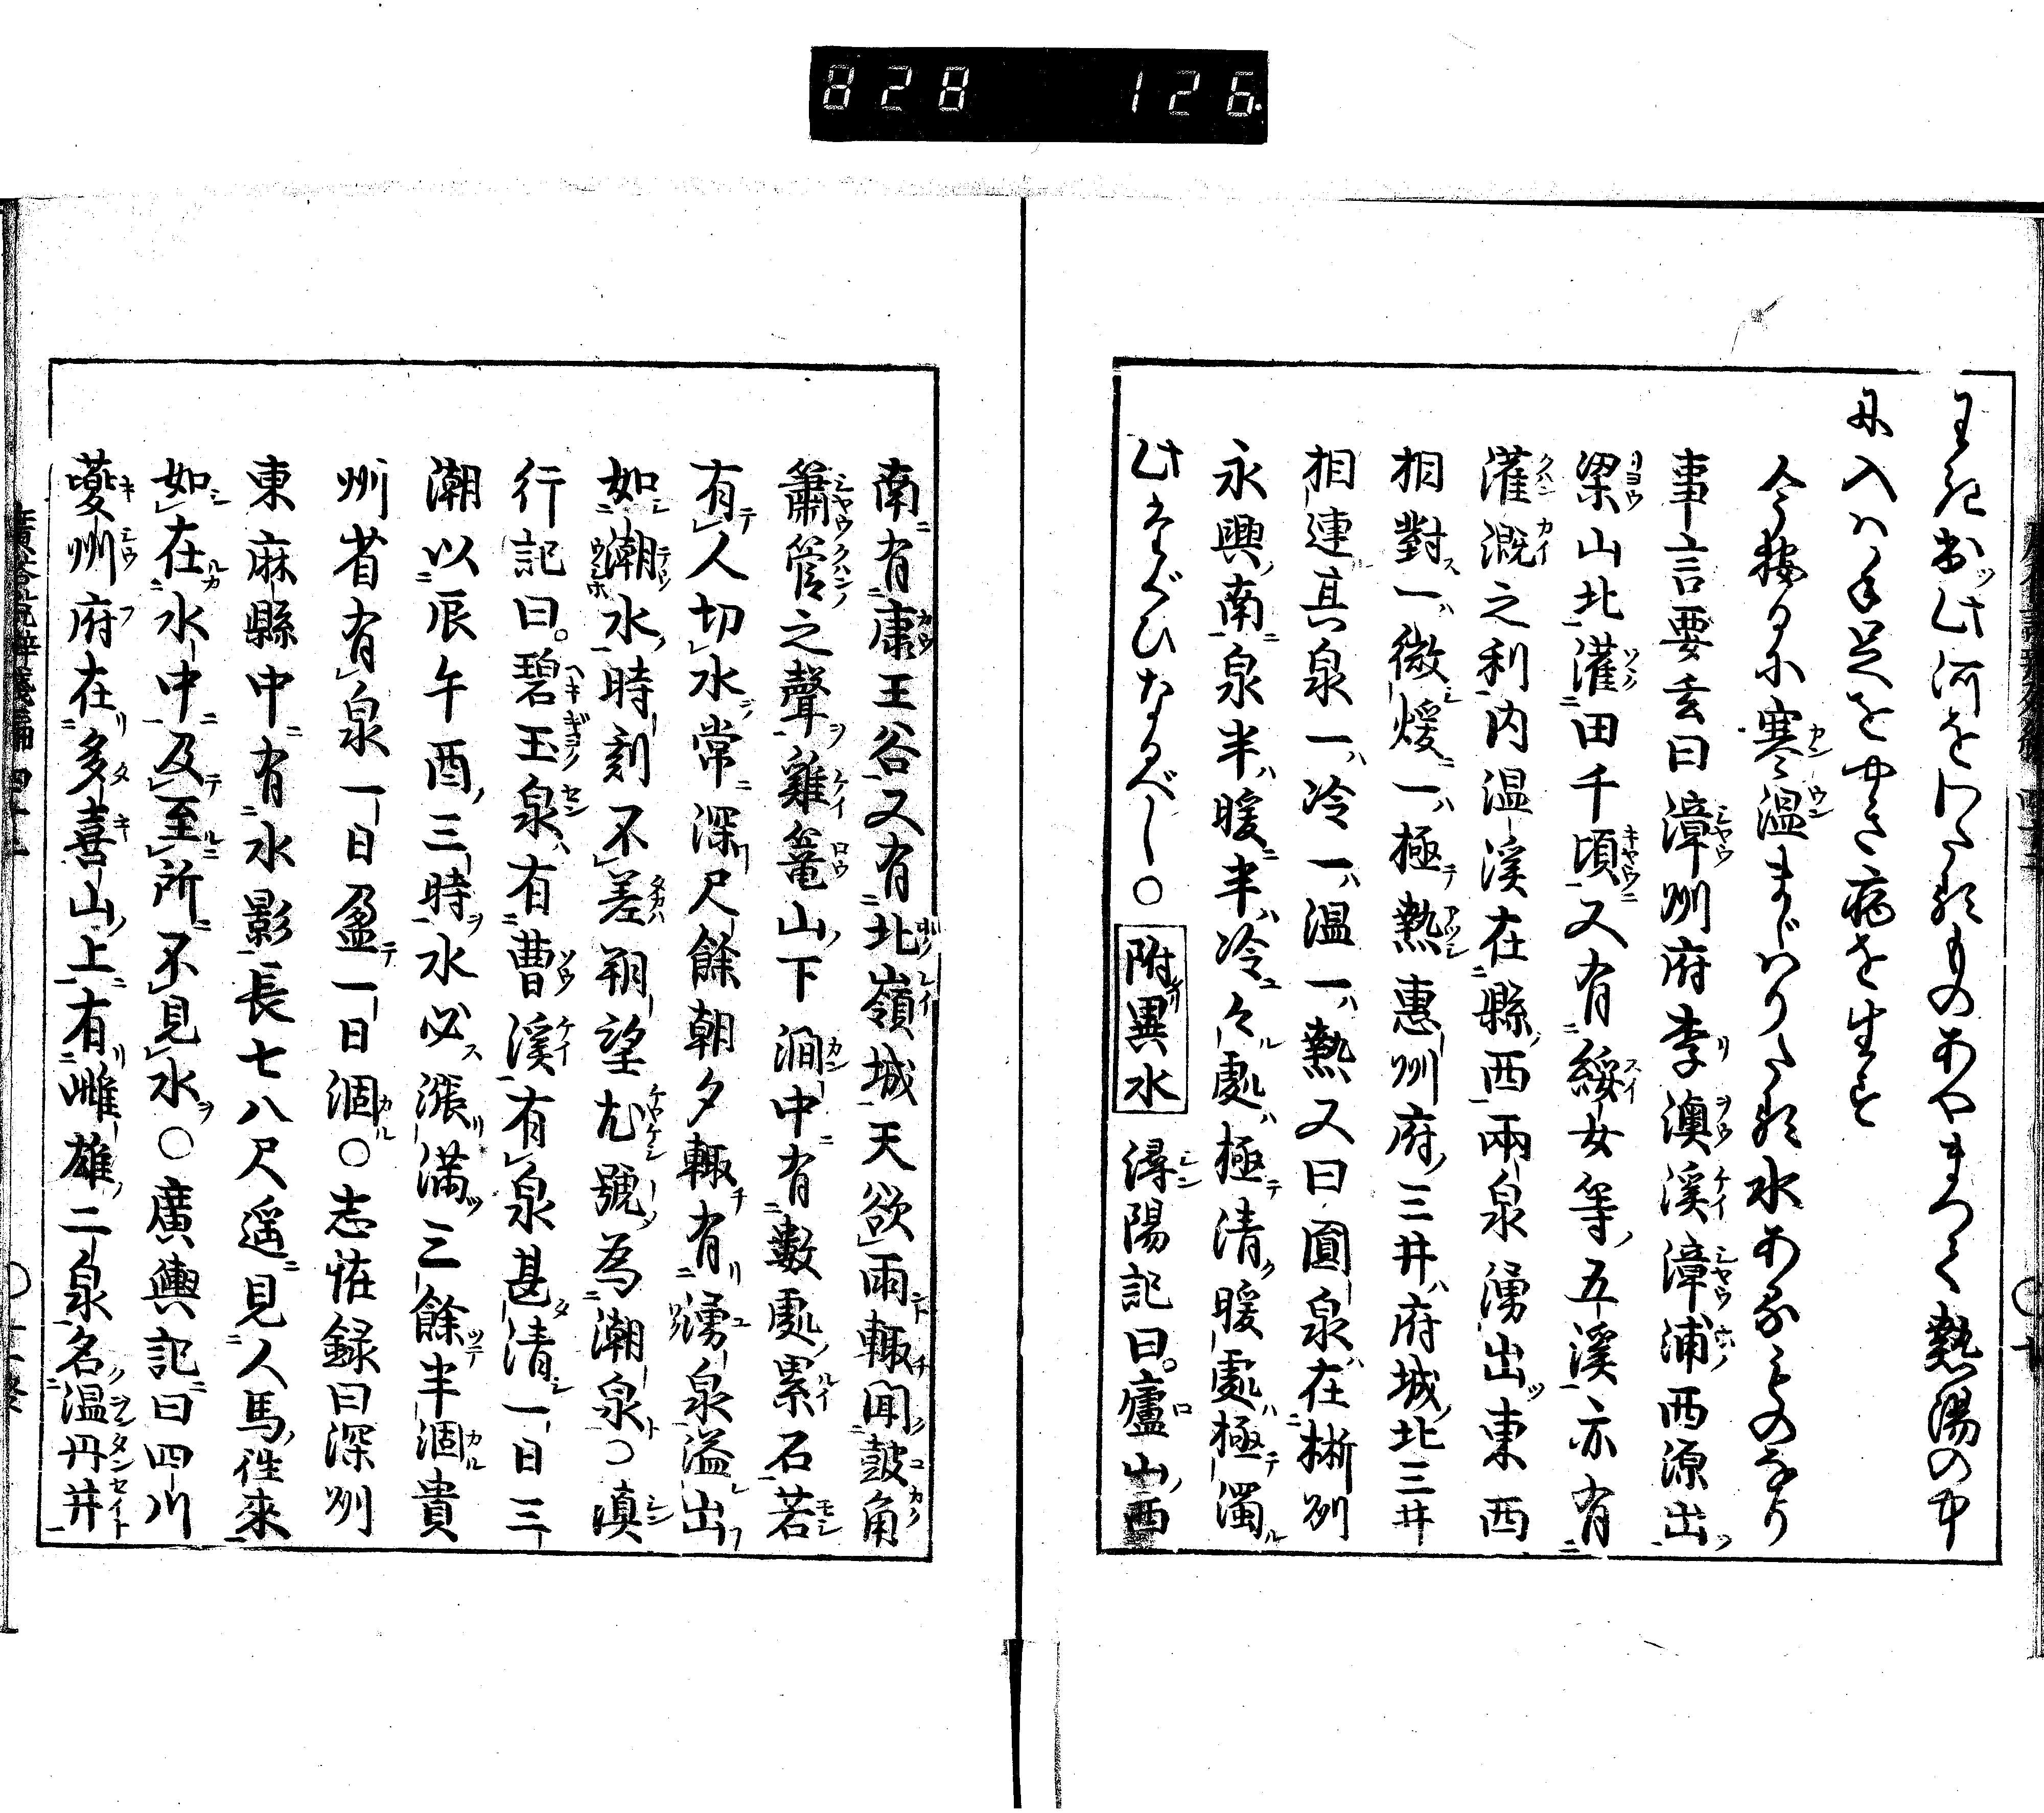 828 126
わき出ッ此河をわたるものあやまつて熱湯の中
に入ハ手足をやき病を生す
今按るに寒温まじハりたる水あるものなり
事言要玄曰漳州府李澳溪漳浦西源出
梁山北灌田千頃又有綏女等五溪亦有
灌漑之利内温溪在縣西兩泉湧出東西
相對一微煖一極熱惠州府三井府城北三井
相連其泉一冷一温一熱又曰圓泉在郴州
永興南泉半暖半冷々處極清暖處極濁
此たぐひなるべし○附異水潯陽記曰廬山西
南有康王谷又有北嶺城天欲雨輙聞鼓角
簫管之聲雞篭山下澗中有數處累石若
有人切水常深尺餘朝夕輙有湧泉溢出
如潮水時刻不差朔望尤號為潮泉○滇
行記曰碧玉泉有曹溪有泉甚清一日三
潮以辰午酉三時水必漲満三餘半涸貴
州省有泉一日盈一日涸○志恠録曰深州
東麻縣中有水影長七八尺遥見人馬徃來
如在水中及至所不見水○廣輿記曰四川
夔州府在多喜山上有雌雄二泉名温丹井